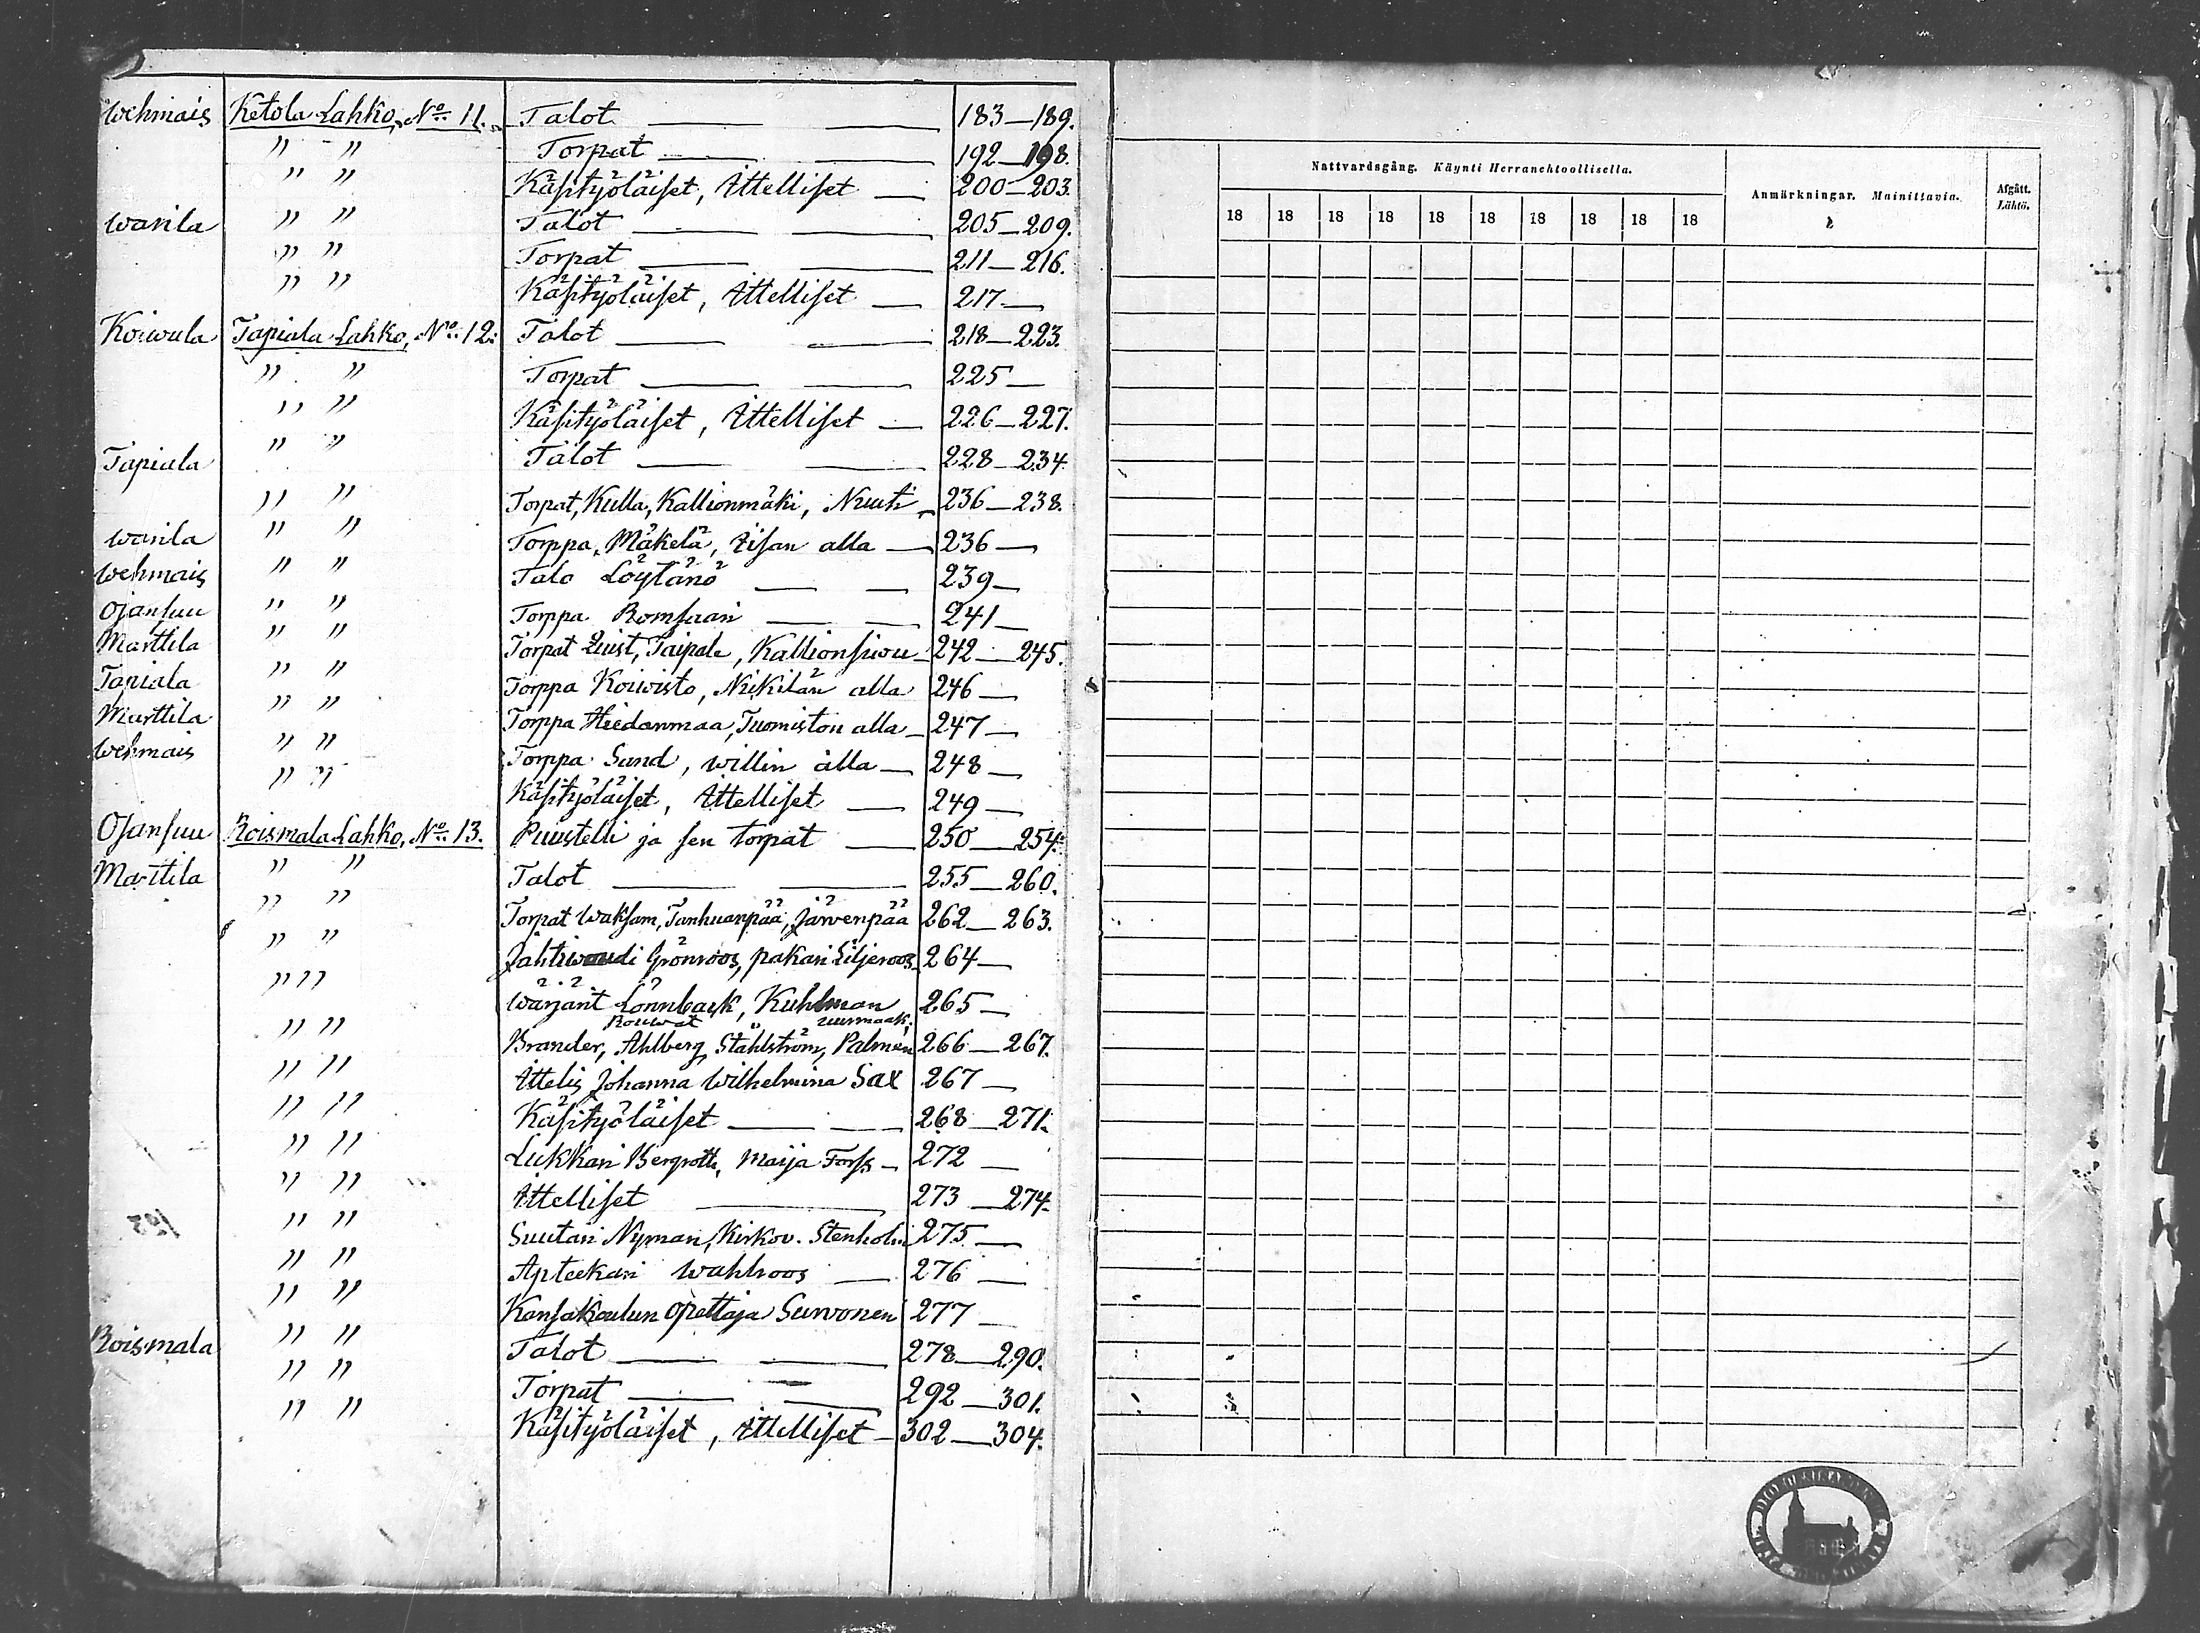 Wehmais Ketola Lahko, No: 11. Talot 183—189.
" " Torpat 192—198.
" " Käsityöläiset, Ittelliset 200—203.
Warila " " Talot 205—209.
" " Torpat 211—216.
" " Käsityöläiset, Ittelliset 217.—
Koiwula Tapiala Lahko, No: 12: Talot 218—223.
" " Torpat 225—
" " Käsityöläiset, Ittelliset 226—227.
Tapiala " " Talot 228—234.
" " Torpat, Kulla, Kallionmäki, Nuuti 236—238.
Warila " " Torppa, Mäkelä, Iisan alla 236—
Wehmais " " Talo Löytänö 239—
Ojansuu " " Torppa Romsaari 241—
Marttila " " Torpat Quist, Taipale, Kallionsivu 242—245.
Tapiala " " Torppa Koiwisto, Nikilän alla 246—
Marttila " " Torppa Hiedanmaa, Tuomiston alla 247—
Wehmais " " Torppa Sund, Willin alla 248—
" " Käsityöläiset, Ittelliset 249—
Ojansuu Roismala Lahko, No: 13. Puustelli ja sen torpat 250—254.
Marttila " " Talot 255—260.
" " Torpat Waksam, Tanhuanpää, Järwenpää 262—263.
" " Jahtiwoudi Grönroos, pakari Siljeroos 264—
" " Wärjärit Lönnbäck, Kuhlman 265—
Rouwat
" " Brander, Ahlberg, Ståhlström, Palmen 266—267.
" " Ittelis Johanna Wilhelmina Sax 267—
" " Käsityöläiset 268—271.
" " Lukkari Bergroth, Maija Forss 272—
" " Ittelliset 273—274.
" " Suutari Nyman, Kirkov. Stenholm 275—
" " Apteekari Wahlroos 276—
" " Kansakoulun opettaja Surwonen 277—
Roismala " " Talot 278—290.
" " Torpat 292—301.
" " Käsityöläiset, Ittelliset 302—304.
Nattvardsgång. Käynti Herranehtoollisella.
Anmärkningar. Mainittavia.
Afgått. Lähtö.
18 18 18 18 18 18 18 18 18 18